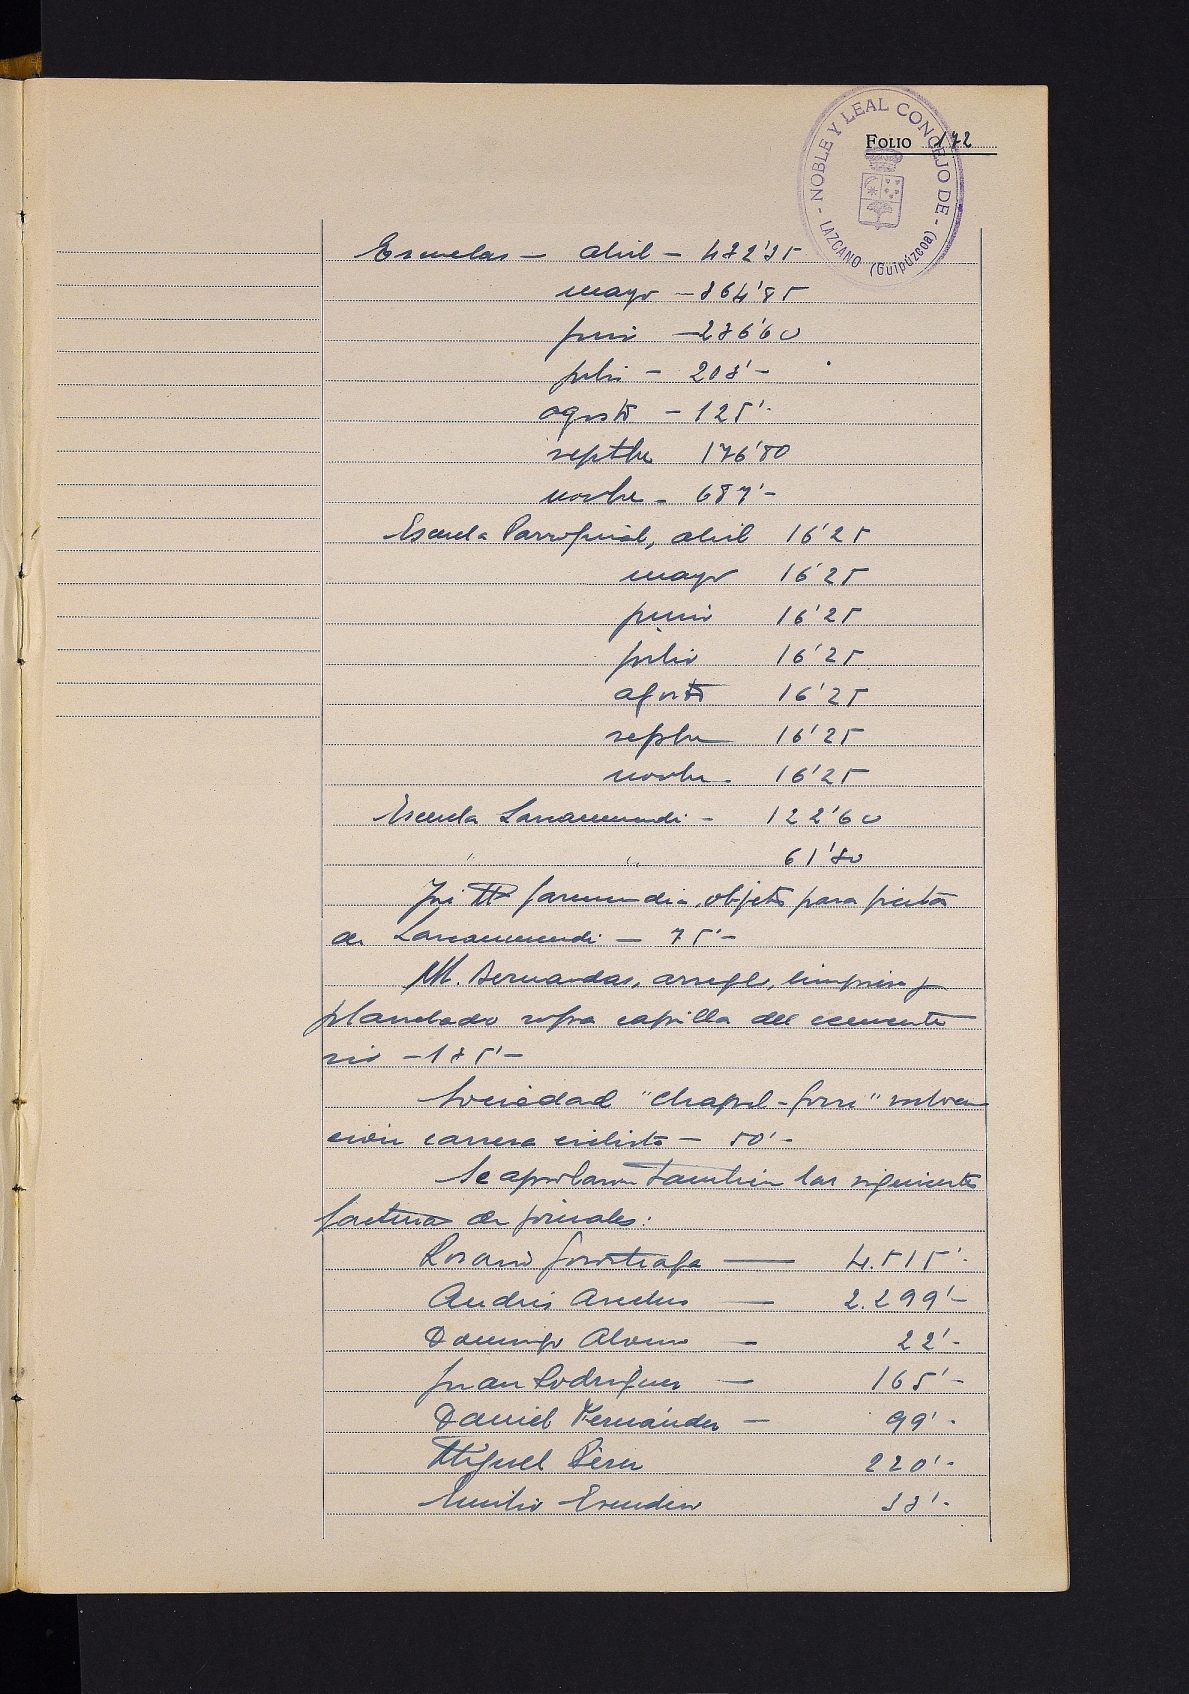 NOBLE Y LEAL CONCEJO DE - LAZCANO (Guipúzcoa) -
FOLIO 172
Escuelas — abril — 432'35
mayo — 364'85
junio — 236'60
julio — 203'-
agosto — 125'-
septbe 176'80
novbe - 687'-
Escuela Parroquial, abril 16'25
mayo 16'25
junio 16'25
julio 16'25
agosto 16'25
sepbre 16'25
novbe. 16'25
Escuela Larraumundi - 122'60
" " 61'80
José Mª Garmendia, objetos para fiesta
de Larraumundi — 75'-
M. Bernardas, arreglo, limpieza y
planchado ropa capilla del cemente
rio — 135'-
Sociedad "Chapel-Gorri" subven
ción carrera ciclista — 50'-
Se aprobaron también las siguientes
facturas de jornales:
Rosario Gorostiaga — 4.515'-
Andrés 2.299'-
Domingo Alonso — 22'-
Juan Rodríguez — 165'-
Daniel Fernández — 99'-
Miguel Pérez 220'-
Emilio Escudero 33'-